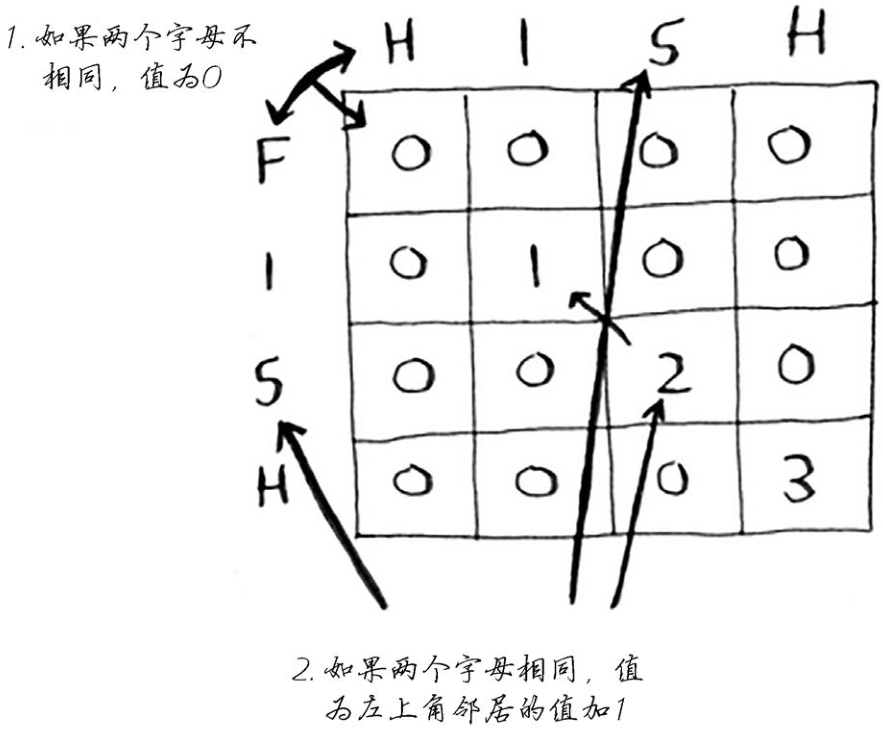 1. 如果两个字母不
相同，值为0
H I S H
F 0 0 0 0
I 0 1 0 0
S 0 0 2 0
H 0 0 0 3
2. 如果两个字母相同，值
为左上角邻居的值加1